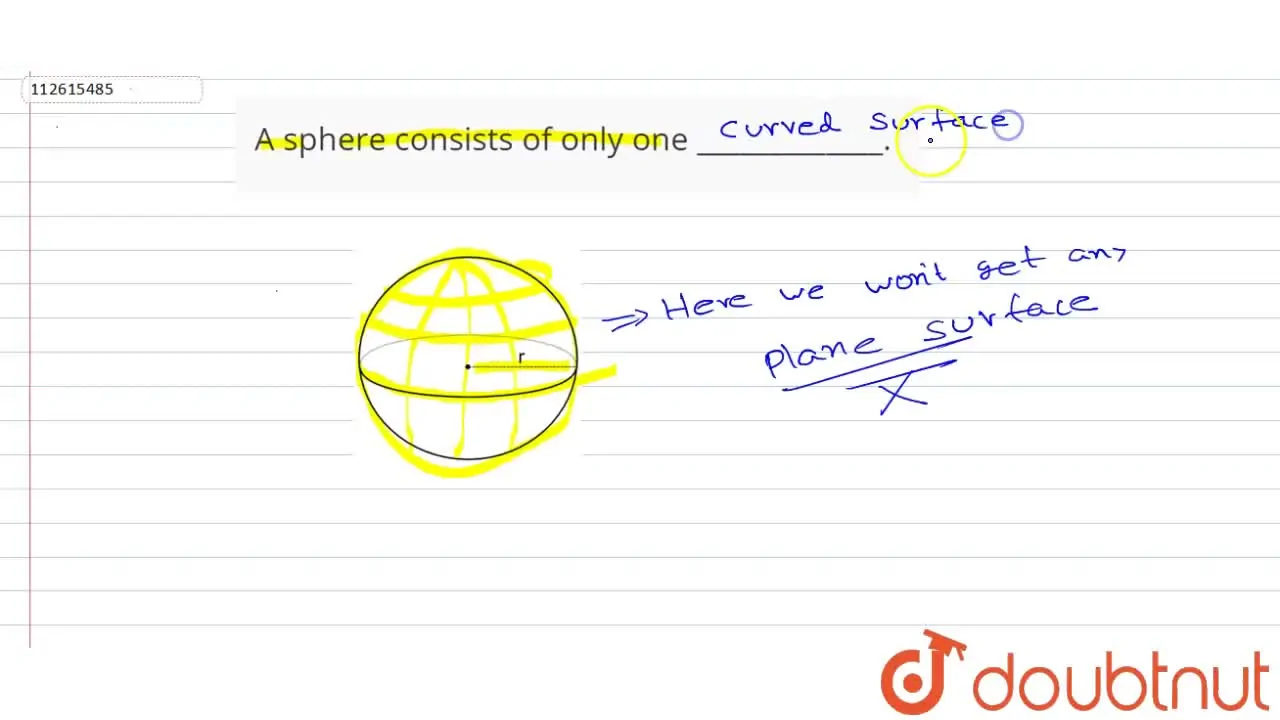 112615485
A sphere consists of only one ____________. curved surface
r
⇒ Here we won't get any
plane surface
X
doubtnut